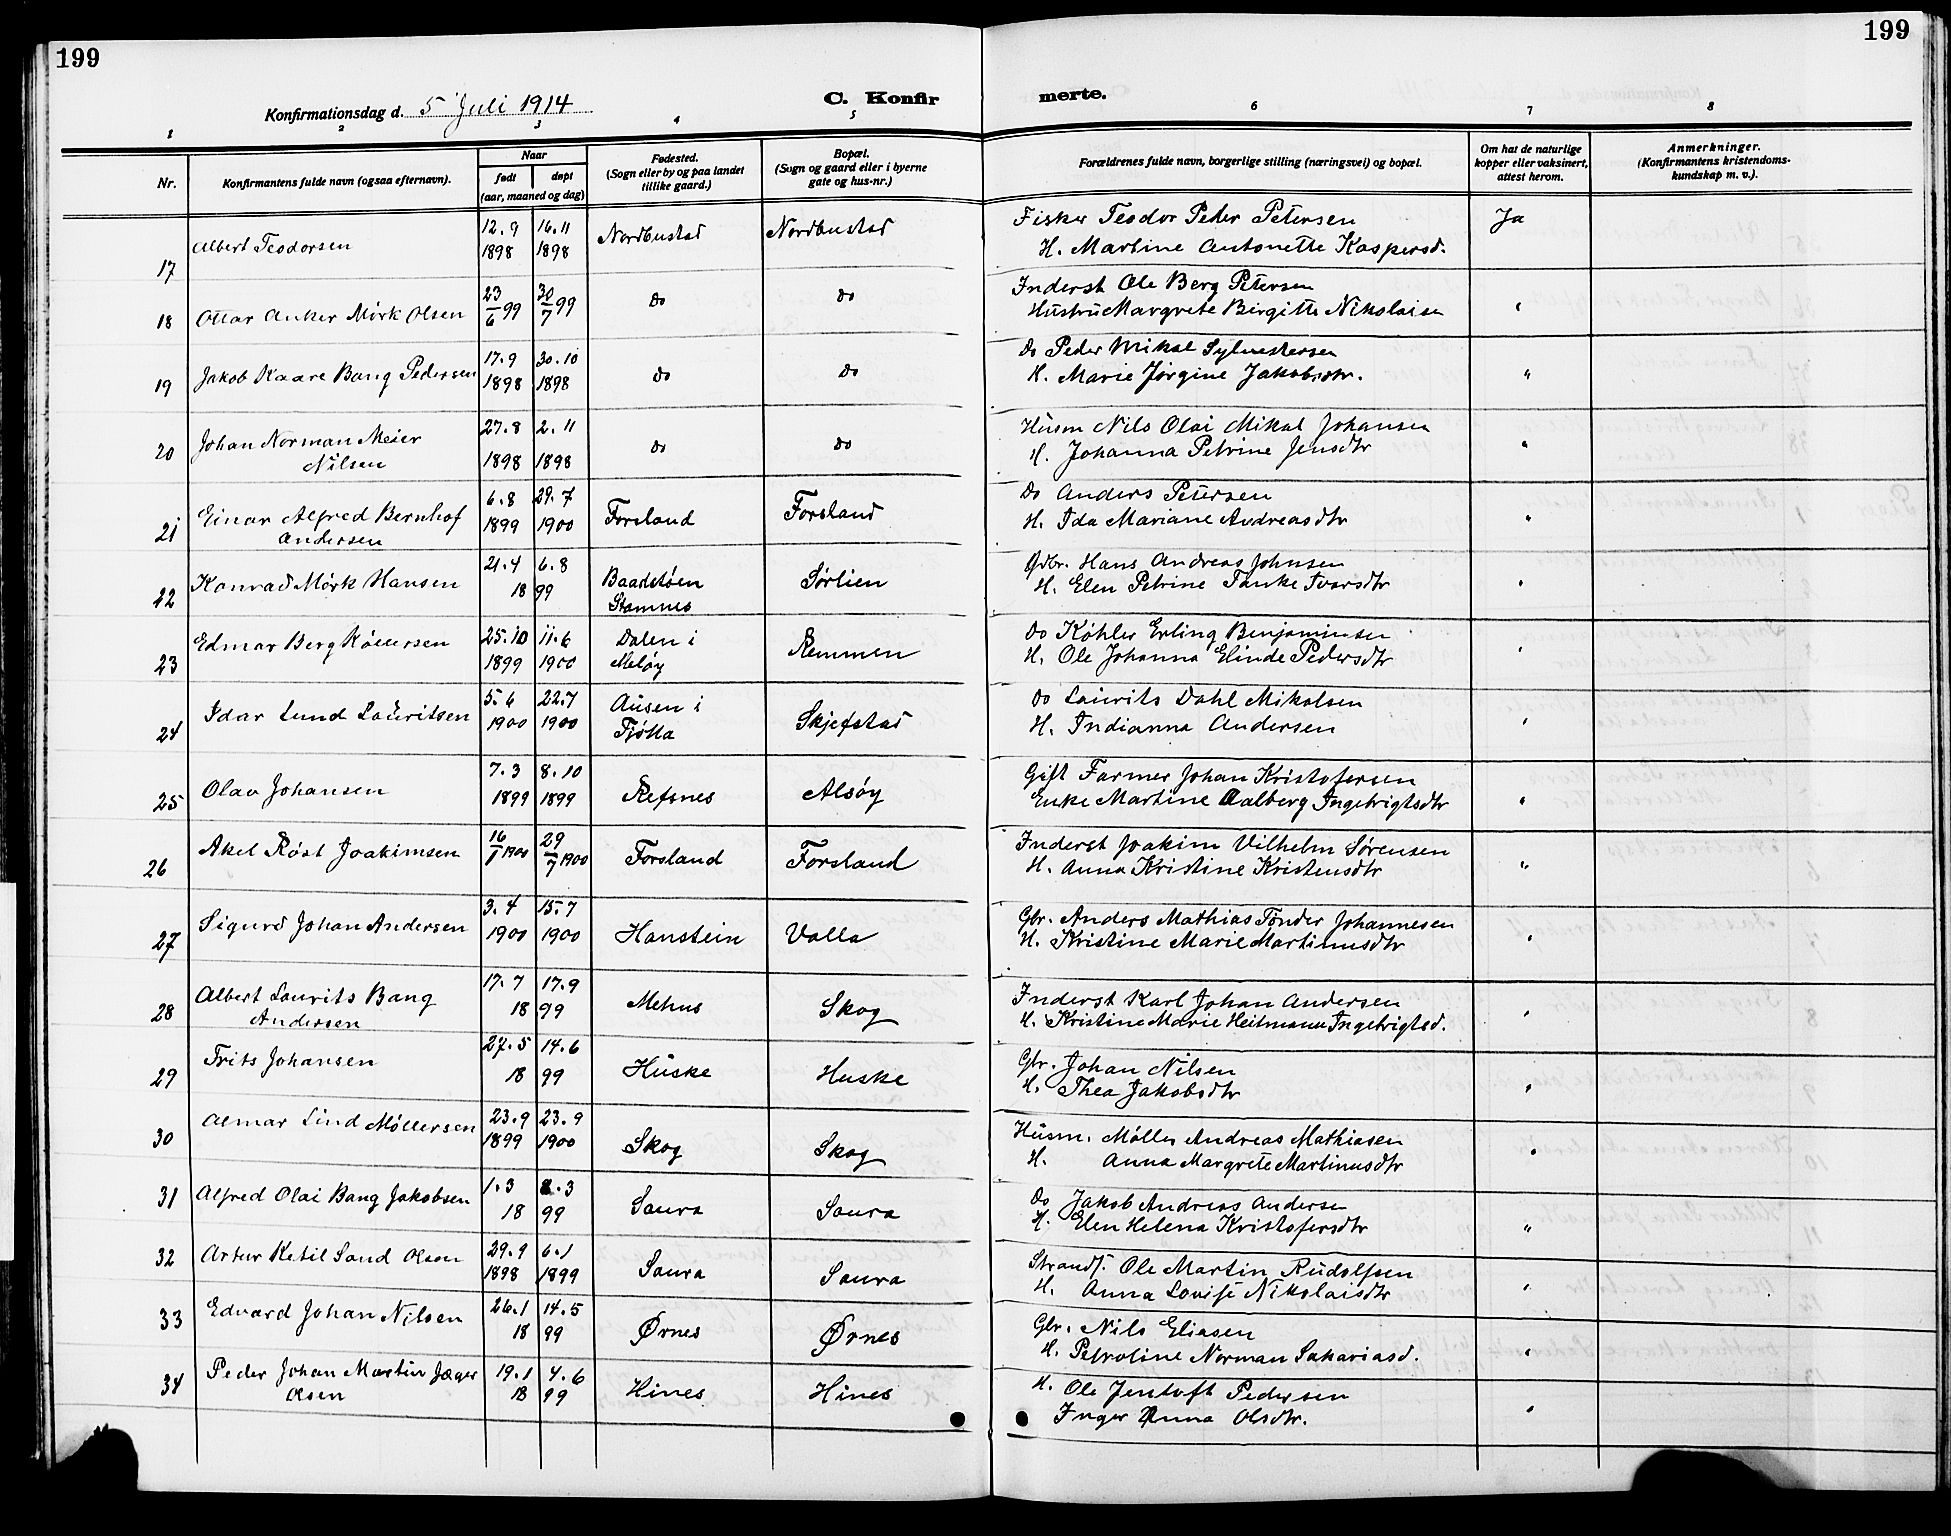 199
199
Konfirmationsdag d. 5 Juli 1914
C. Konfir
merte.
1 2 3 4 5 6 7 8
Nr.
Konfirmantens fulde navn (ogsaa efternavn).
Naar
født
døpt
(aar, maaned og dag)
Fødested.
(Sogn eller by og paa landet
tillike gaard.)
Bopæl.
(Sogn og gaard eller i byerne
gate og hus-nr.)
Forældrenes fulde navn, borgerlige stilling (næringsvei) og bopæl.
Om hat de naturlige
kopper eller vaksinert,
attest herom.
Anmerkninger.
(Konfirmantens kristendoms-
kundskap m. v.).
17 Albert Teodorsen 12.9 1898 16.11 1898 Nordbustad Nordbustad Fisker Teodor Peter Petersen Ja
H. Martine Antonette Kaspersd.
18 Ottar Anker Mørk Olsen 23/6 99 30/7 99 do do Inderst Ole Berg Petersen
Hustru Margrete Birgitte Nikolaisen "
19 Jakob Kaare Bang Pedersen 17.9 1898 30.10 1898 do do Do Peder Mikal Sylvestersen
H. Marie Jørgine Jakobsdtr. "
20 Johan Norman Meier 27.8 1898 2.11 1898 do do Husm Nils Olai Mikal Johansen
Nilsen H. Johanna Petrine Jensdtr "
21 Einar Alfred Bernhof 6.8 1899 29.7 1900 Forsland Forsland Do Anders Petersen
Andersen H. Ida Mariane Andreasdtr "
22 Konrad Mørk Hansen 21.4 6.8 1899 Baadstøen Sørlien Gdbr. Hans Andreas Johnsen
Stamnes H. Elen Petrine Tanke Ivarsdtr "
23 Edmar Berg Kølersen 25.10 1899 11.6 1900 Dalen i Remmen Do Køhler Erling Benjaminsen
Meløy H. Ole Johanna Elinde Pedersdtr "
24 Idar Lund Lauritsen 5.6 1900 22.7 1900 Ausen i Skjefstad Do Laurits Dahl Mikalsen
Tjøtta H. Indianna Andersen "
25 Olav Johansen 7.3 1899 8.10 1899 Refsnes Alsøy Gift Farmer Johan Kristofersen
Enke Martine Aalberg Ingebrigtsdtr "
26 Aksel Røst Joakimsen 16/1 1900 29/7 1900 Forsland Forsland Inderst Joakim Vilhelm Sørensen
H. Anna Kristine Kristensdtr "
27 Sigurd Johan Andersen 3.4 1900 15.7 1900 Hanstein Valla Gbr. Anders Mathias Tønder Johannesen
H. Kristine Marie Martinusdtr "
28 Albert Laurits Bang 17.7 17.9 1899 Mehus Skog Inderst Karl Johan Andersen
Andersen H. Kristine Marie Heitmann Ingebrigtsd. "
29 Frits Johansen 27.5 14.6 1899 Huske Huske Gbr. Johan Nilsen
H. Thea Jakobsdtr "
30 Almar Lind Møllersen 23.9 1899 23.9 1900 Skog Skog Husm. Møller Andreas Mathiasen
H. Anna Margrete Martinusdtr "
31 Alfred Olai Bang Jakobsen 1.3 8.3 1899 Saura Saura Do Jakob Andreas Andersen
H. Elen Helena Kristofersdtr "
32 Artur Ketil Sand Olsen 29.9 1898 6.1 1899 Saura Saura Strands. Ole Martin Rudolfsen
H. Anna Lovise Nikolaisdtr "
33 Edvard Johan Nilsen 26.1 14.5 1899 Ørnes Ørnes Gbr. Nils Eliasen
H. Petroline Norman Sakariasd. "
34 Peder Johan Martin Jæger 19.1 4.6 1899 Hines Hines H. Ole Jentoft Pedersen
Olsen Inger Anna Olsdtr. "